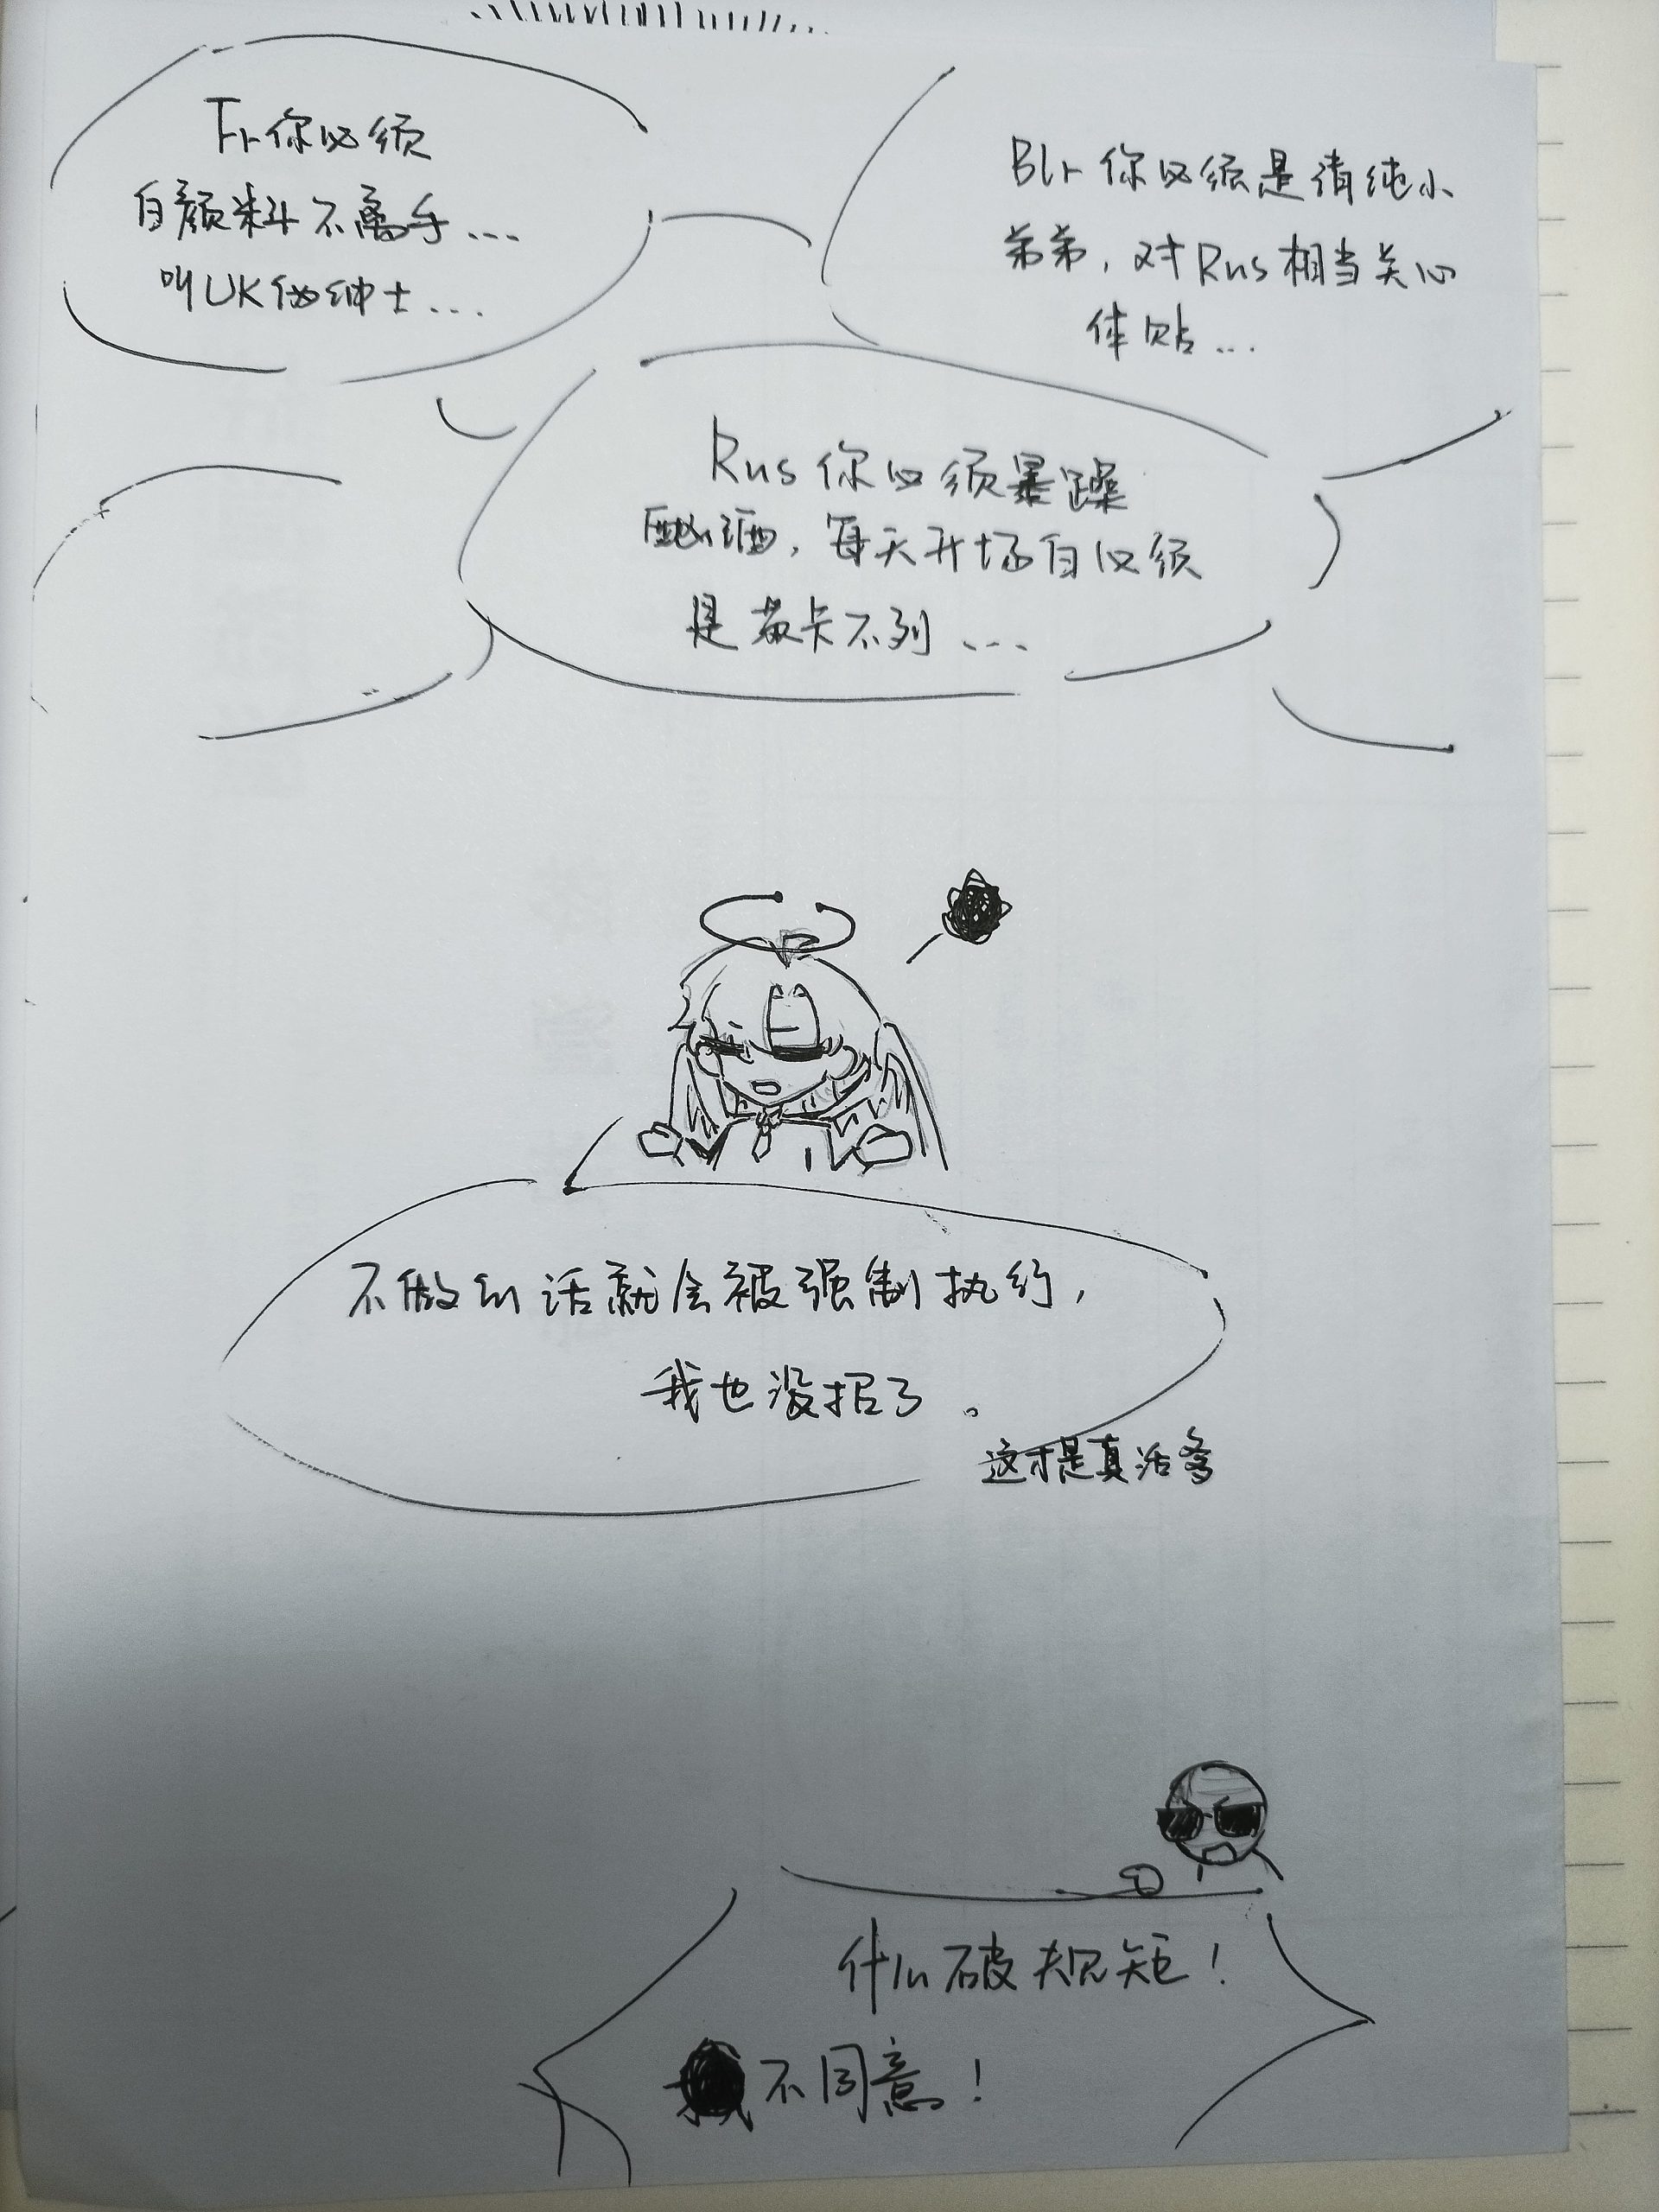 Fr你必须
白颜料不离手...
叫UK伪绅士...
Blr你必须是清纯小
弟弟，对Rus相当关心
体贴...
Rus你必须暴躁
酗酒，每天开场白必须
是苏卡不列...
不做的话就会被强制执行，
我也没招了。
这才是真活爹
什么破规矩！
不同意！